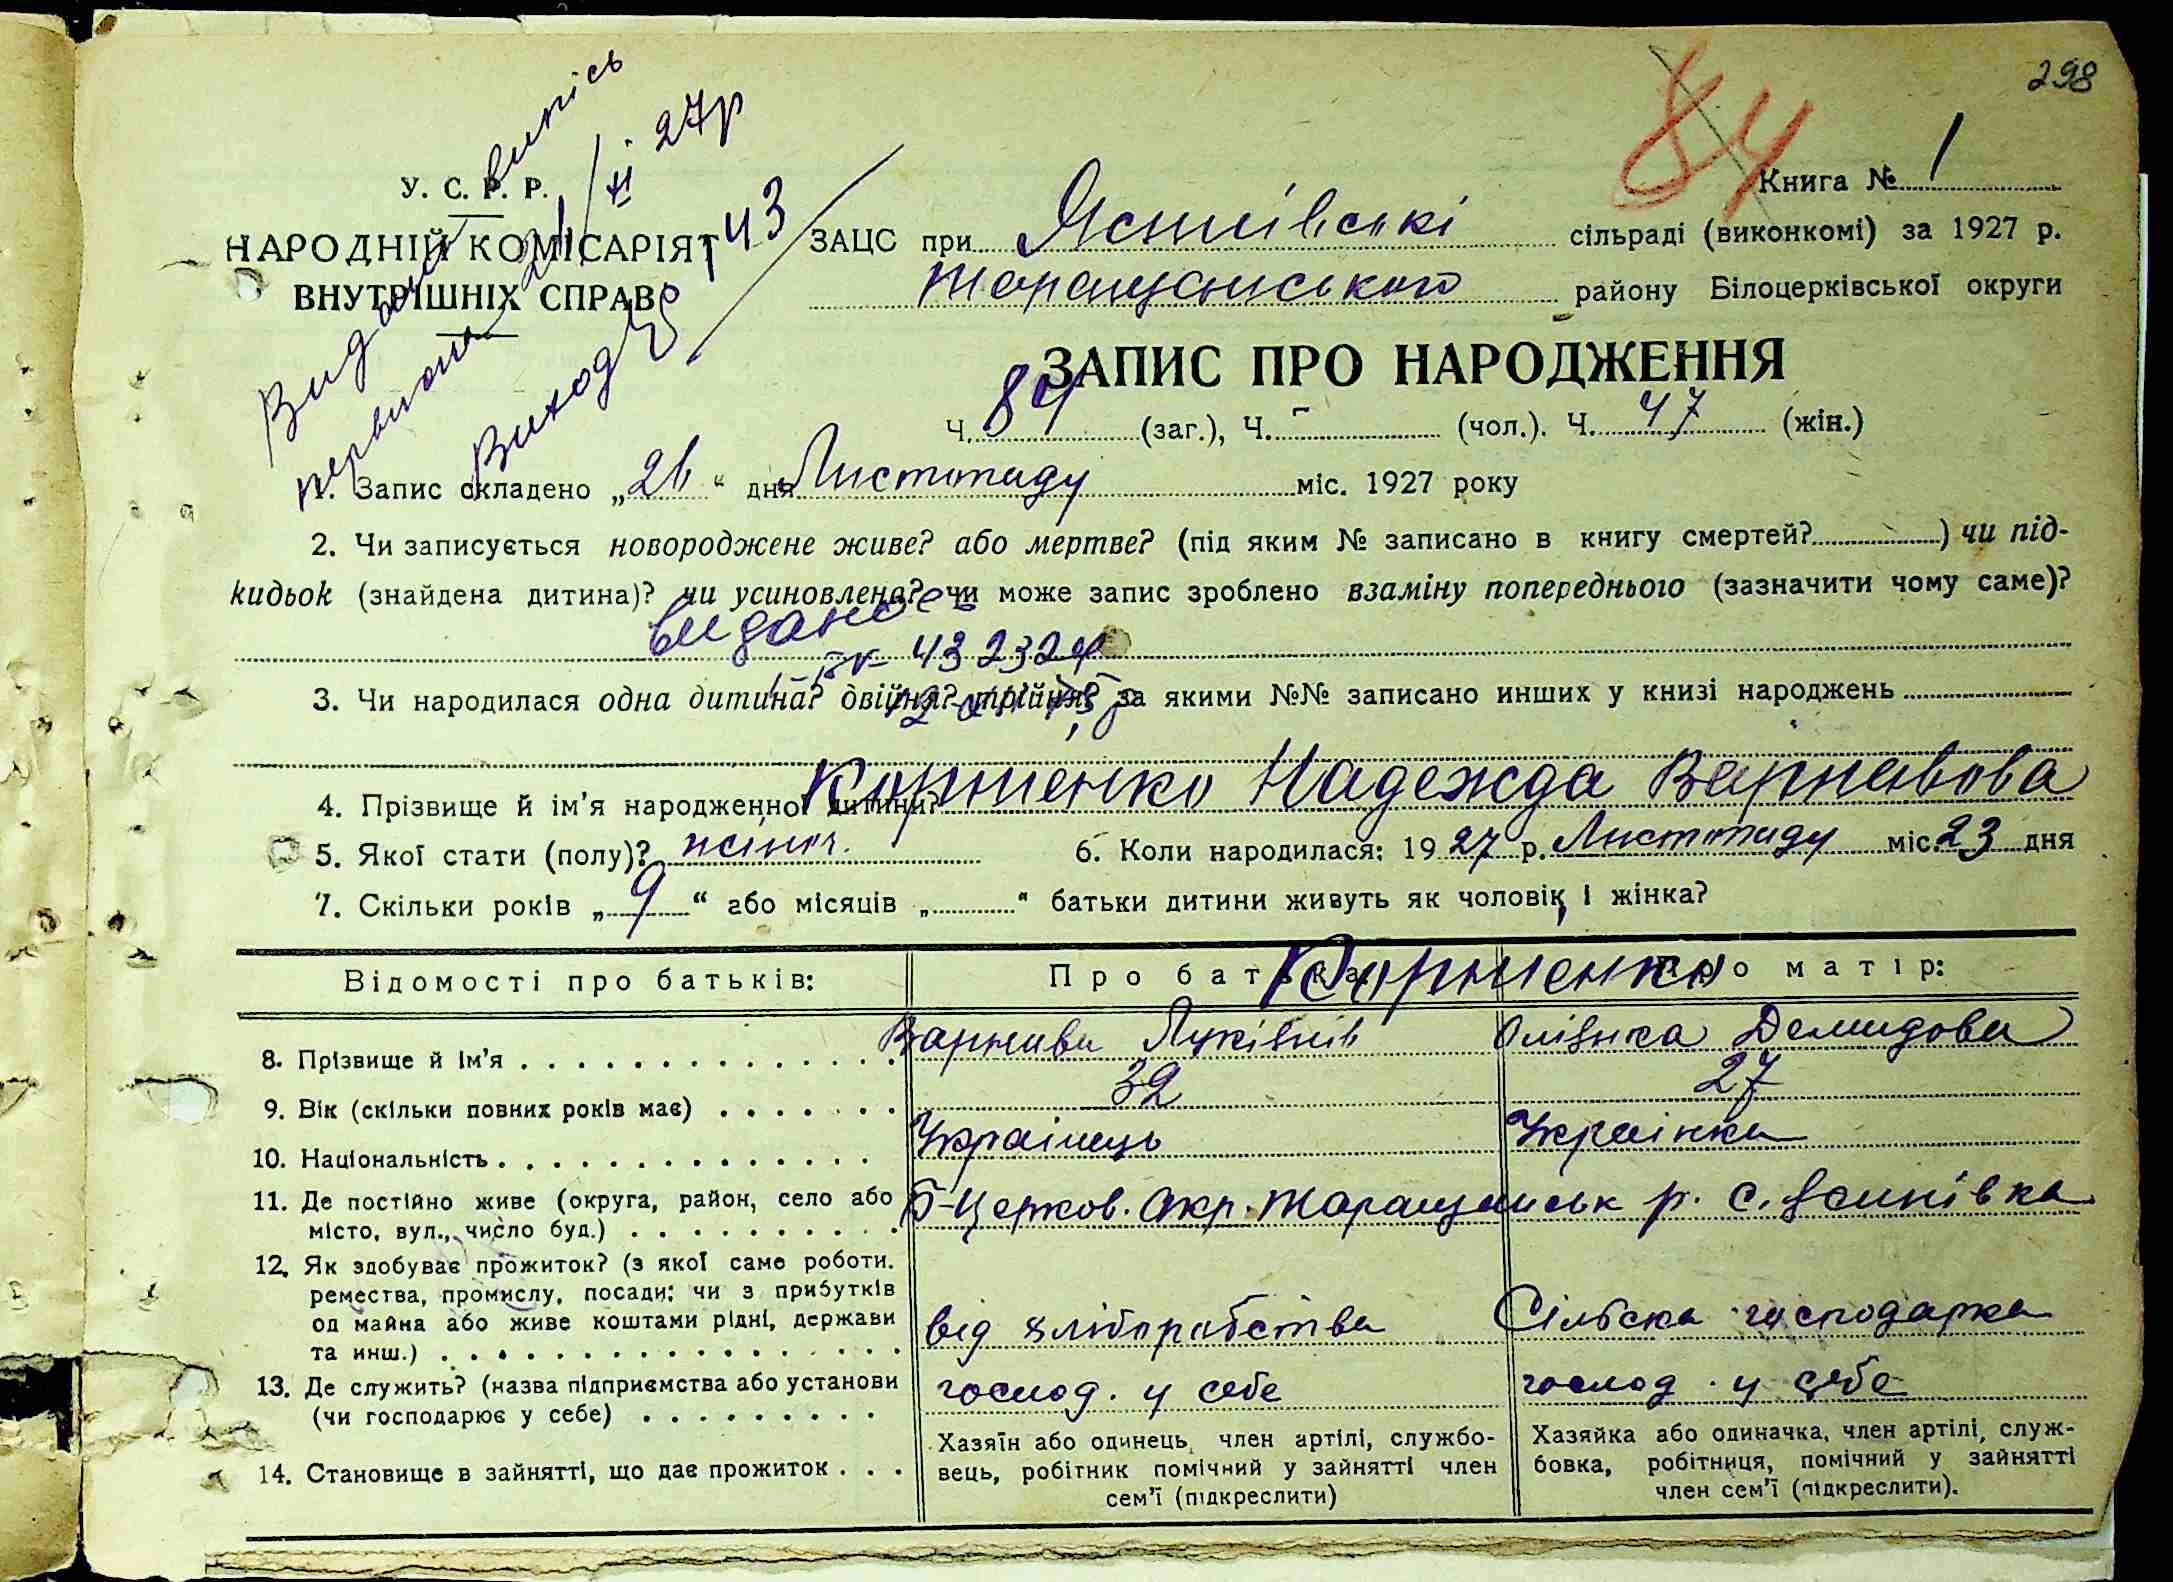 298
84
Видано випись
первисна 26/XI 27р
Виход № 143
У. С. Р. Р.
НАРОДНІЙ КОМІСАРІЯТ
ВНУТРІШНІХ СПРАВ
Книга № 1
ЗАЦС при Яснівські сільраді (виконкомі) за 1927 р.
Таращанського району Білоцерківської округи
ЗАПИС ПРО НАРОДЖЕННЯ
Ч. 84 (заг.), Ч. - (чол.). Ч. 47 (жін.)
1. Запис складено „26“ дня Листопаду міс. 1927 року
2. Чи записується новороджене живе? або мертве? (під яким № записано в книгу смертей? ) чи під-
кидьок (знайдена дитина)? чи усиновлена? чи може запис зроблено взаміну попереднього (зазначити чому саме)?
видано
432324
3. Чи народилася одна дитина? двійня? трійня? за якими №№ записано инших у книзі народжень
4. Прізвище й ім'я народженної дитини? Коршенко Надежда Варнавова
5. Якої стати (полу)? жіноч. 6. Коли народилася: 1927 р. Листопаду міс. 23 дня
7. Скільки років „9“ або місяців „ “ батьки дитини живуть як чоловік і жінка?
Відомості про батьків: Про батька: Про матір:
Коршенко
8. Прізвище й ім'я Варнава Лукіянів Олянка Демидова
9. Вік (скільки повних років має) 32 27
10. Національність Українець Українка
11. Де постійно живе (округа, район, село або Б-Церков. Окр. Таращанськ р. с. Яснівка
місто, вул., число буд.)
12. Як здобуває прожиток? (з якої саме роботи.
ремества, промислу, посади; чи з прибутків
од майна або живе коштами рідні, держави від хліборобства Сільська господарка
та инш.)
13. Де служить? (назва підприємства або установи господ. у себе господ. у себе
(чи господарює у себе)
14. Становище в зайнятті, що дає прожиток
Хазяїн або одинець, член артілі, службо-
вець, робітник помічний у зайнятті член
сем'ї (підкреслити)
Хазяйка або одиначка, член артілі, служ-
бовка, робітниця, помічний у зайнятті
член сем'ї (підкреслити).